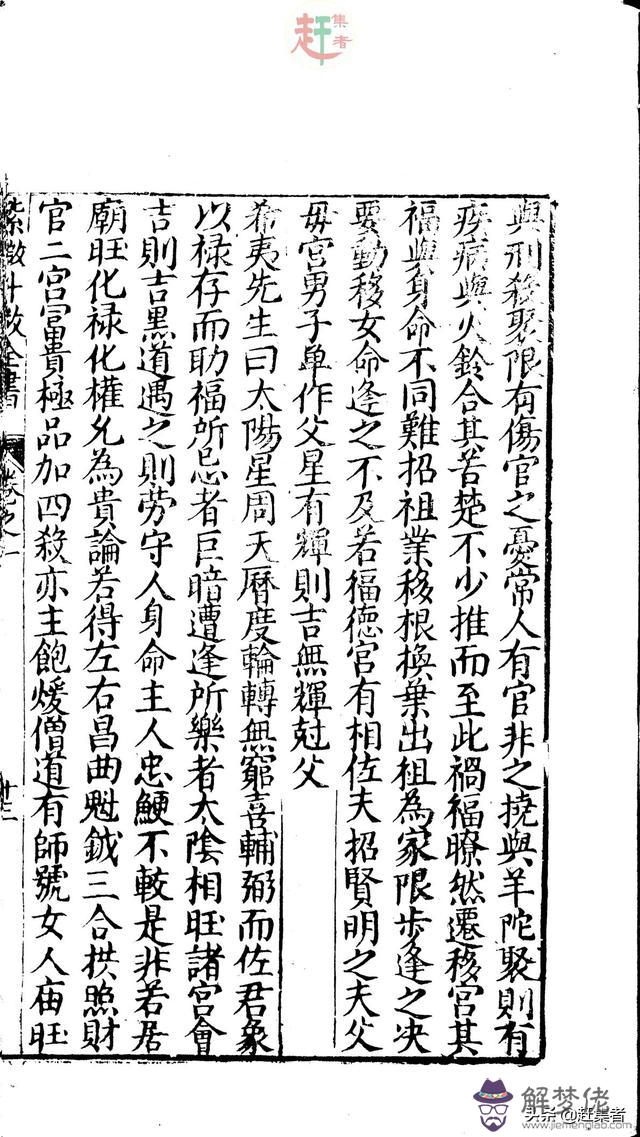 趕集者
與刑殺聚限有傷官之憂常人有官非之撓與羊陀聚則有
疾病與火鈴合其苦楚不少推而至此禍福暸然遷移宮其
福與身命不同難招祖業移根換葉出祖為家限步逢之决
要動移女命逢之不及若福德宮有相佐夫招賢明之夫父
母宮男子单作父星有輝則吉無輝尅父
希夷先生曰太陽星周天曆度輪轉無窮喜輔弼而佐君象
以禄存而助福所忌者巨暗遭逢所樂者太陰相旺諸宮會
吉則吉黑道遇之則劳守人身命主人忠鯁不較是非若居
廟旺化禄化權允為貴論若得左右昌曲魁鉞三合拱照財
官二宮富貴極品加四殺亦主飽煖僧道有師號女人庙旺
紫微斗数全書 卷之一 十二
解梦佬
头条@赶集者
www.jiemenglao.com